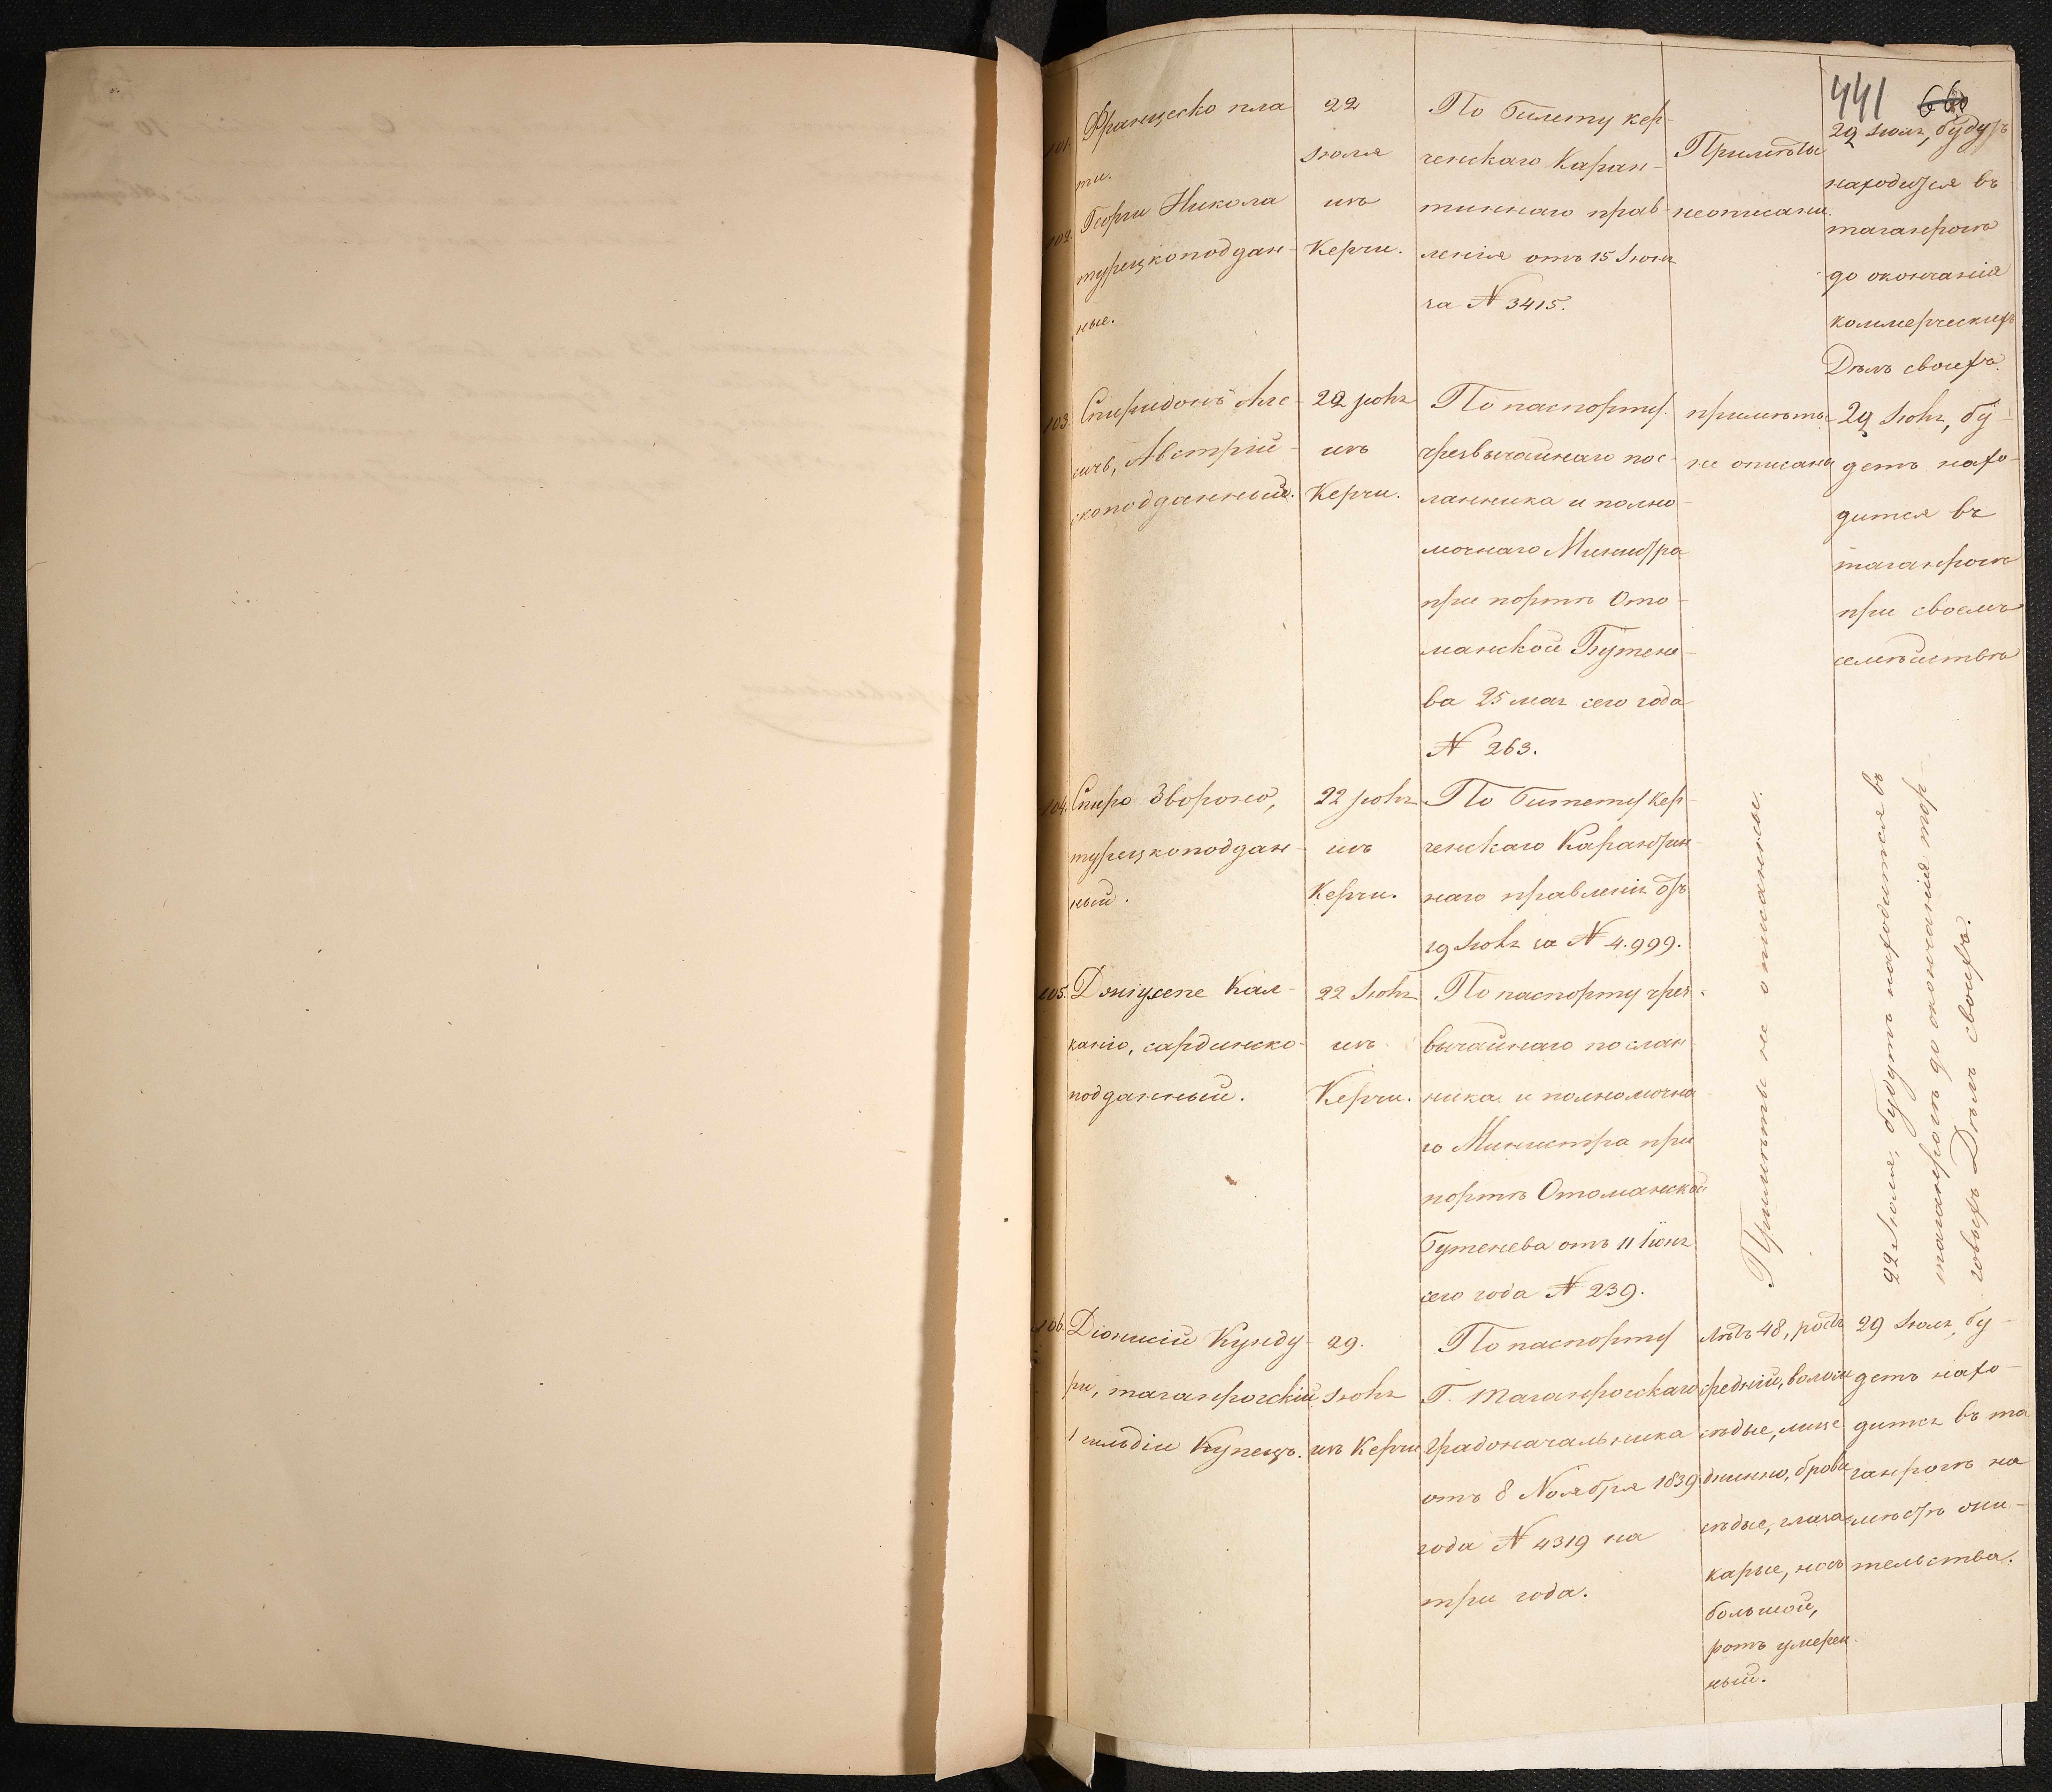 441 660
101. Франческо пла
ти.
102. Георги Никола
турецкоподдан-
ные.
22
Июля
изъ
Керчи.
По билету кер-
ченскаго Каран-
тиннаго прав-
ленія отъ 15 Июня
за № 3415.
Приметы
неописаны.
22 Июля, будутъ
находится въ
таганроге
до окончанія
коммерческихъ
Делъ своихъ.
103. Спиридонъ
Австрій-
скоподданный.
22 Июля
изъ
Керчи.
По паспорту
чрезвычайнаго пос-
ланника и полно-
мочнаго Министра
при портѣ Ото-
манской Бутене-
ва 25 мая сего года
№ 263.
приметы
не описаны
22 Июля, бу-
детъ нахо-
дится въ
таганрогѣ
при своемъ
семѣйствѣ
104. Спиро Звороно,
турецкоподдан-
ный.
22 Июля
изъ
Керчи.
По билету Кер-
ченскаго Карантин-
наго правленія отъ
19 Июля за № 4.999.
105. Джіузепе Кал-
каніо, сардинско-
подданный.
22 Июля
изъ
Керчи.
По паспорту чрез-
вычайнаго послан-
ника и полномочна-
го Министра при
портѣ Отоманской
Бутенева отъ 11 Іюня
сего года № 239.
Примѣты не описанны.
22 Июля, будутъ находится въ
таганрогѣ до окончанія тор-
говыхъ Дѣлъ своихъ.
106. Діонисій Кунду-
ри, таганрогскій
1 гильдіи Купецъ.
29.
Июля
изъ Керчи
По паспорту
Г. Таганрогскаго
Градоначальника
отъ 8 Ноября 1839
года № 4319 на
три года.
лѣтъ 48, ростъ
средній, волосы
сѣдые, лице
длинно, брови
сѣдые, глаза
карые, носъ
большой,
ротъ умерен-
ный.
29 Июля, бу-
детъ нахо-
дится въ та-
ганрогѣ на
мѣстѣ жи-
тельства.